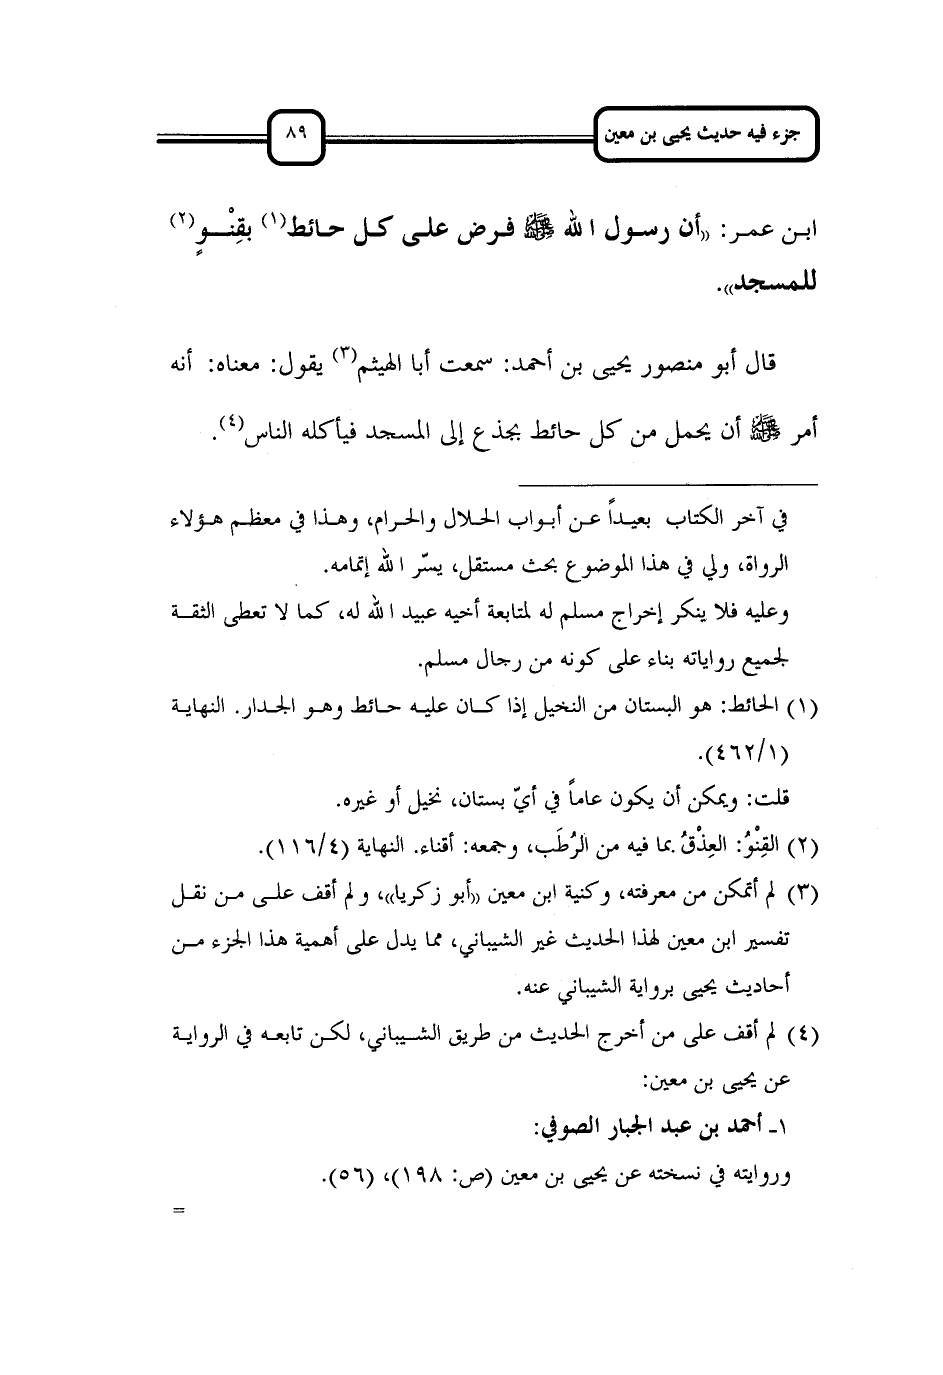 جزء فيه حديث يحيى بن معين
٨٩
ابن عمر: «أن رسول الله ﷺ فرض على كل حائط(١) بقِنْوٍ(٢)
للمسجد».
قال أبو منصور يحيى بن أحمد: سمعت أبا الهيثم(٣) يقول: معناه: أنه
أمر ﷺ أن يحمل من كل حائط بجذع إلى المسجد فيأكله الناس(٤).
في آخر الكتاب بعيداً عن أبواب الحلال والحرام، وهذا في معظم هؤلاء
الرواة، ولي في هذا الموضوع بحث مستقل، يسّر الله إتمامه.
وعليه فلا ينكر إخراج مسلم له لمتابعة أخيه عبيد الله له، كما لا تعطى الثقة
لجميع رواياته بناء على كونه من رجال مسلم.
(١) الحائط: هو البستان من النخيل إذا كان عليه حائط وهو الجدار. النهاية
(٤٦٢/١).
قلت: ويمكن أن يكون عاماً في أيّ بستان، نخيل أو غيره.
(٢) القِنْوُ: العِذْقُ بما فيه من الرُطَب، وجمعه: أقناء. النهاية (١١٦/٤).
(٣) لم أتمكن من معرفته، وكنية ابن معين «أبو زكريا»، ولم أقف على من نقل
تفسير ابن معين لهذا الحديث غير الشيباني، مما يدل على أهمية هذا الجزء من
أحاديث يحيى برواية الشيباني عنه.
(٤) لم أقف على من أخرج الحديث من طريق الشيباني، لكن تابعه في الرواية
عن يحيى بن معين:
١ـ أحمد بن عبد الجبار الصوفي:
وروايته في نسخته عن يحيى بن معين (ص: ١٩٨)، (٥٦).
=